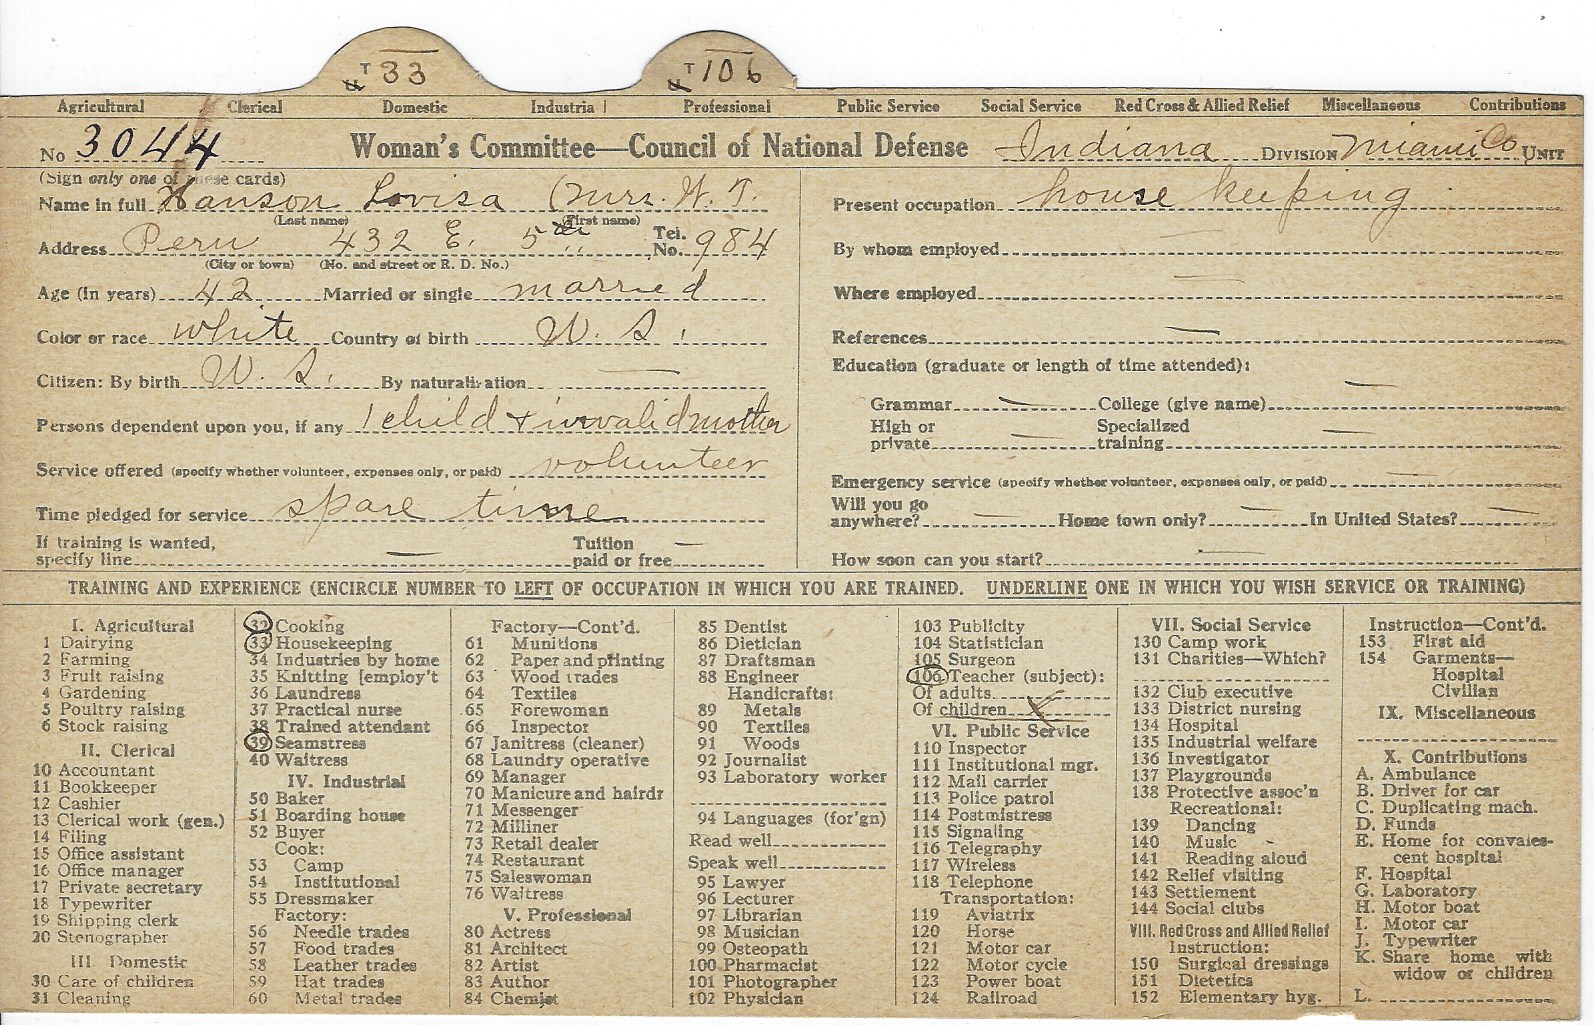 T 33 T 106
Agricultural Clerical Domestic Industrial Professional Public Service Social Service Red Cross & Allied Relief Miscellaneous Contributions
No 3044 Woman's Committee—Council of National Defense Indiana DIVISION Miami Co UNIT
(Sign only one of these cards)
Name in full Hanson Lovisa (Mrs. W. T.
(Last name) (First name)
Address Peru 432 E. 5th Tel. No. 984
(City or town) (No. and street or R. D. No.)
Age (In years) 42 Married or single married
Color or race white Country of birth U. S.
Citizen: By birth U. S. By naturalization —
Persons dependent upon you, if any 1 child + invalid mother
Service offered (specify whether volunteer, expenses only, or paid) volunteer
Time pledged for service spare time
If training is wanted,
specify line — Tuition
paid or free —
Present occupation house keeping
By whom employed —
Where employed —
References —
Education (graduate or length of time attended):
Grammar — College (give name) —
High or
private — Specialized
training —
Emergency service (specify whether volunteer, expenses only, or paid) —
Will you go
anywhere? — Home town only? — In United States? —
How soon can you start? —
TRAINING AND EXPERIENCE (ENCIRCLE NUMBER TO LEFT OF OCCUPATION IN WHICH YOU ARE TRAINED. UNDERLINE ONE IN WHICH YOU WISH SERVICE OR TRAINING)
I. Agricultural
1 Dairying
2 Farming
3 Fruit raising
4 Gardening
5 Poultry raising
6 Stock raising
II. Clerical
10 Accountant
11 Bookkeeper
12 Cashier
13 Clerical work (gen.)
14 Filing
15 Office assistant
16 Office manager
17 Private secretary
18 Typewriter
19 Shipping clerk
20 Stenographer
III Domestic
30 Care of children
31 Cleaning
32 Cooking
33 Housekeeping
34 Industries by home
35 Knitting [employ't
36 Laundress
37 Practical nurse
38 Trained attendant
39 Seamstress
40 Waitress
IV. Industrial
50 Baker
51 Boarding house
52 Buyer
Cook:
53 Camp
54 Institutional
55 Dressmaker
Factory:
56 Needle trades
57 Food trades
58 Leather trades
59 Hat trades
60 Metal trades
Factory—Cont'd.
61 Munitions
62 Paper and printing
63 Wood trades
64 Textiles
65 Forewoman
66 Inspector
67 Janitress (cleaner)
68 Laundry operative
69 Manager
70 Manicure and hairdr
71 Messenger
72 Milliner
73 Retail dealer
74 Restaurant
75 Saleswoman
76 Waitress
V. Professional
80 Actress
81 Architect
82 Artist
83 Author
84 Chemist
85 Dentist
86 Dietician
87 Draftsman
88 Engineer
Handicrafts:
89 Metals
90 Textiles
91 Woods
92 Journalist
93 Laboratory worker
94 Languages (for'gn)
Read well
Speak well
95 Lawyer
96 Lecturer
97 Librarian
98 Musician
99 Osteopath
100 Pharmacist
101 Photographer
102 Physician
103 Publicity
104 Statistician
105 Surgeon
106 Teacher (subject):
Of adults
Of children X
VI. Public Service
110 Inspector
111 Institutional mgr.
112 Mail carrier
113 Police patrol
114 Postmistress
115 Signaling
116 Telegraphy
117 Wireless
118 Telephone
Transportation:
119 Aviatrix
120 Horse
121 Motor car
122 Motor cycle
123 Power boat
124 Railroad
VII. Social Service
130 Camp work
131 Charities—Which?
132 Club executive
133 District nursing
134 Hospital
135 Industrial welfare
136 Investigator
137 Playgrounds
138 Protective assoc'n
Recreational:
139 Dancing
140 Music
141 Reading aloud
142 Relief visiting
143 Settlement
144 Social clubs
VIII. Red Cross and Allied Relief
Instruction:
150 Surgical dressings
151 Dietetics
152 Elementary hyg.
Instruction—Cont'd.
153 First aid
154 Garments—
Hospital
Civilian
IX. Miscellaneous
X. Contributions
A. Ambulance
B. Driver for car
C. Duplicating mach.
D. Funds
E. Home for convales-
cent hospital
F. Hospital
G. Laboratory
H. Motor boat
I. Motor car
J. Typewriter
K. Share home with
widow or children
L.